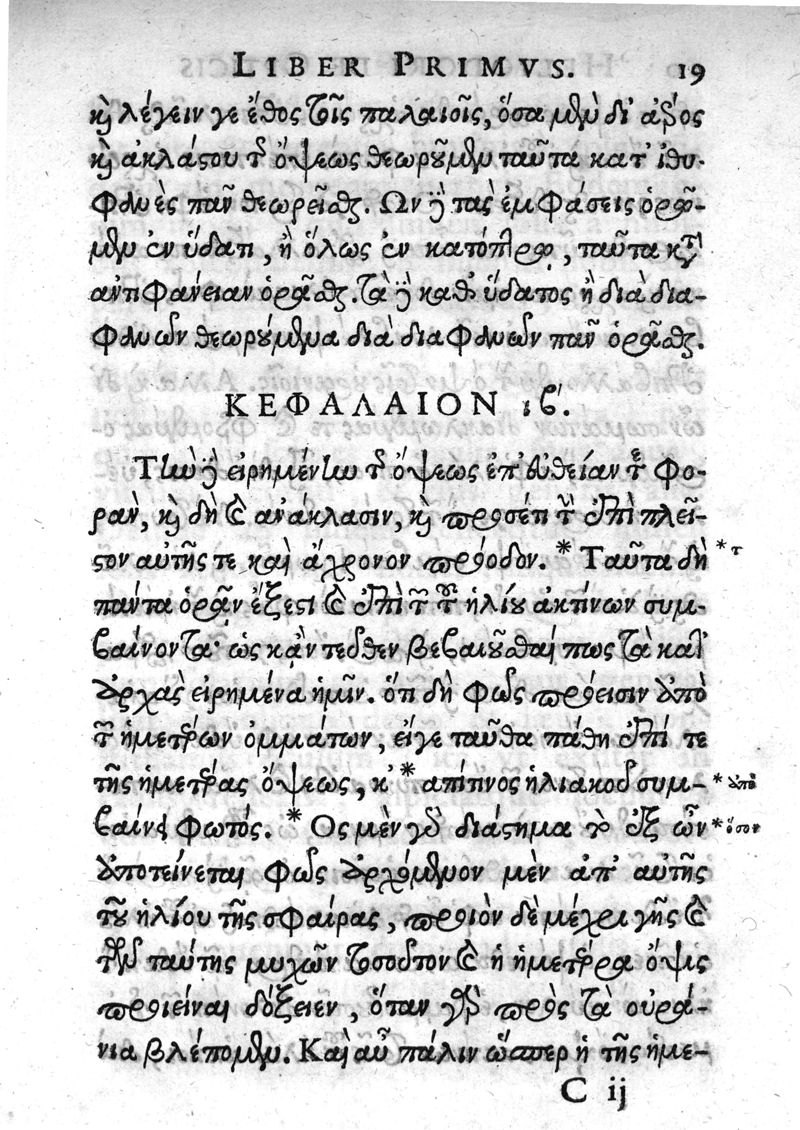 LIBER PRIMVS. 19
καὶ λέγειν γε ἔθος τοῖς παλαιοῖς, ὅσα μὲν δι' ἀέρος
καὶ ἀκλάστου τῆς ὄψεως θεωροῦμεν ταῦτα κατ' ἰθυ-
φανὲς παν θεωρεῖσθαι. Ων δὲ τὰς ἐμφάσεις ὁρῶ-
μεν ἐν ὕδατι, ἢ ὅλως ἐν κατόπτρῳ, ταῦτα κατ'
ἀντιφάνειαν ὁρᾶσθαι. Τὰ δὲ καθ' ὕδατος ἢ διὰ δια-
φανῶν θεωρούμενα διὰ διαφανῶν παν ὁρᾶσθαι.
ΚΕΦΑΛΑΙΟΝ ιβ'.
Τὴν δὲ εἰρημένην τῆς ὄψεως ἐπ' εὐθείαν τε φο-
ρὰν, καὶ δὴ καὶ ἀνάκλασιν, καὶ προσέτι τὴν ἐπὶ πλεῖ-
στον αὐτῆς τε καὶ ἄχρονον πρόοδον. * Ταῦτα δὴ * τ
πάντα ὁρᾶν ἔξεστι καὶ ἐπὶ τῶν τοῦ ἡλίου ἀκτίνων συμ-
βαίνοντα· ὡς κἂν τεῦθεν βεβαιοῦσθαι πως τὰ κατ'
ἀρχὰς εἰρημένα ἡμῖν. ὅτι δὴ φῶς πρόεισιν ἀπὸ
τῶν ἡμετέρων ὀμμάτων, εἴγε ταῦθα πάθη ἐπί τε
τῆς ἡμετέρας ὄψεως, κ' * απιπνος ἡλιακοῦ συμ- * ἀπὸ
βαίνει φωτός. * Ος μὲν γὰρ διάστημα τὸ ἐξ ὧν * ὅσον
ἀποτείνεται φῶς ἀρχόμενον μὲν ἀπ' αὐτῆς
τοῦ ἡλίου τῆς σφαίρας, προιὸν δὲ μέχρι γῆς καὶ
τῶν ταύτης μυχῶν τοσοῦτον καὶ ἡ ἡμετέρα ὄψις
προιέναι δόξειεν, ὅταν γὰρ πρὸς τὰ οὐρά-
νια βλέπομεν. Καὶ αὖ πάλιν ὥσπερ ἡ τῆς ἡμε-
C ij